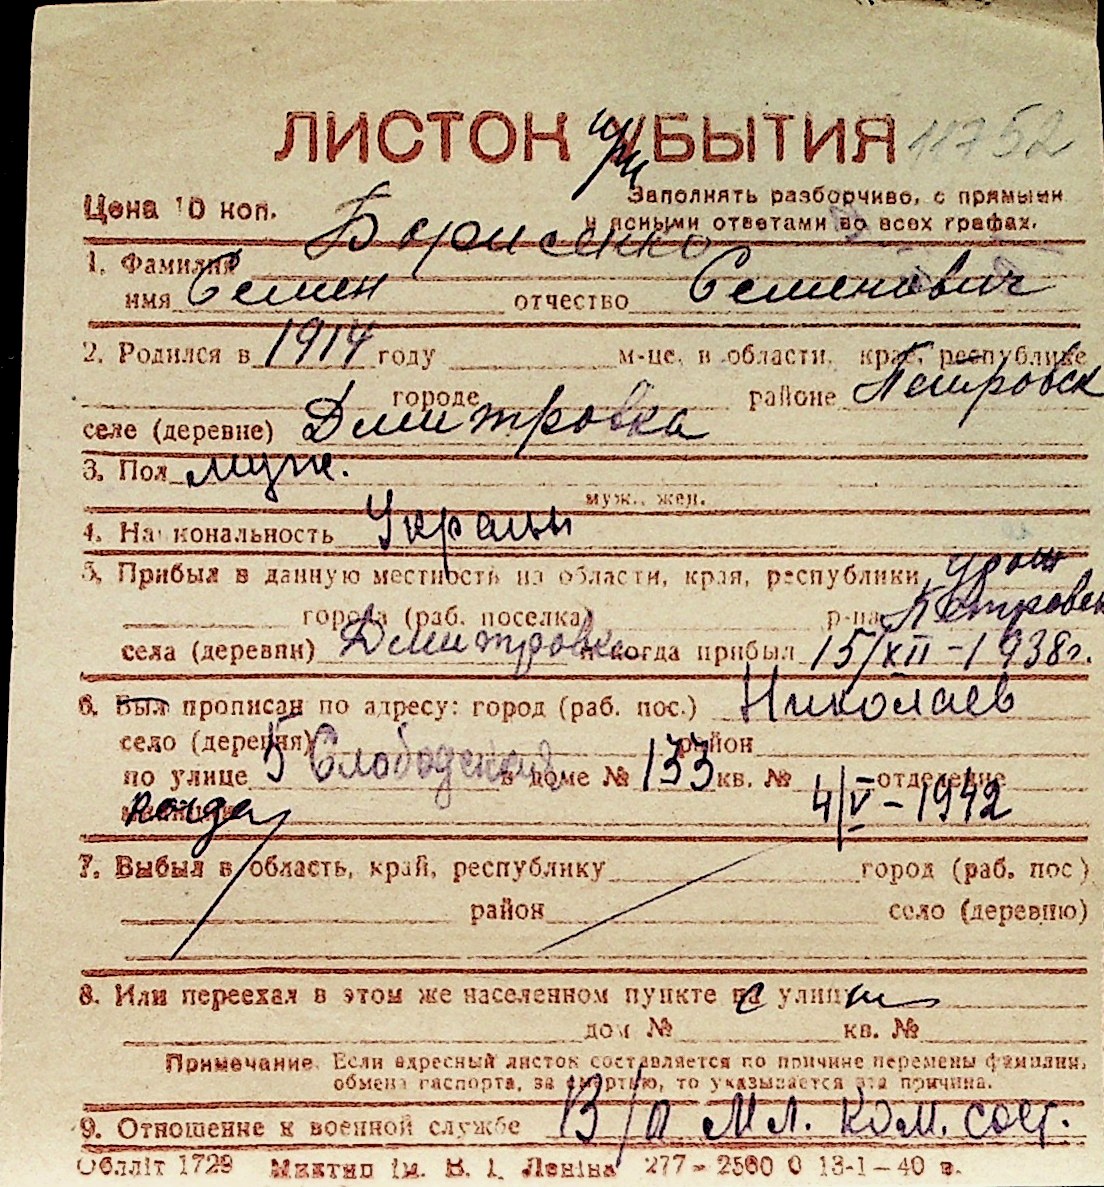 ЛИСТОК УБЫТИЯ 11752
при
Цена 10 коп. Заполнять разборчиво, с прямыми
и ясными ответами во всех графах.
1. Фамилия Борисенко
имя Семен отчество Семенович
2. Родился в 1914 году м-це, в области, крае, республике
городе районе Петровск
селе (деревне) Дмитровка
3. Пол муж.
муж., жен.
4. Национальность Украинц
5. Прибыл в данную местность из области, края, республики
города (раб. поселка) р-на Петровск
села (деревни) Дмитровка и когда прибыл 15/XII-1938г.
6. Был прописан по адресу: город (раб. пос.) Николаев
село (деревня) район
по улице 5 Слободская в доме № 133 кв. № отделение
когда 4/V-1942
7. Выбыл в область, край, республику город (раб. пос)
район село (деревню)
8. Или переехал в этом же населенном пункте с улицы
дом № кв. №
Примечание. Если адресный листок составляется по причине перемены фамилии,
обмена паспорта, за смертью, то указывается эта причина.
9. Отношение к военной службе В/о Мл. ком. сост.
Обллiт 1729 Миктип iм. В. I. Ленiна 277-2560 0 13-1-40 в.